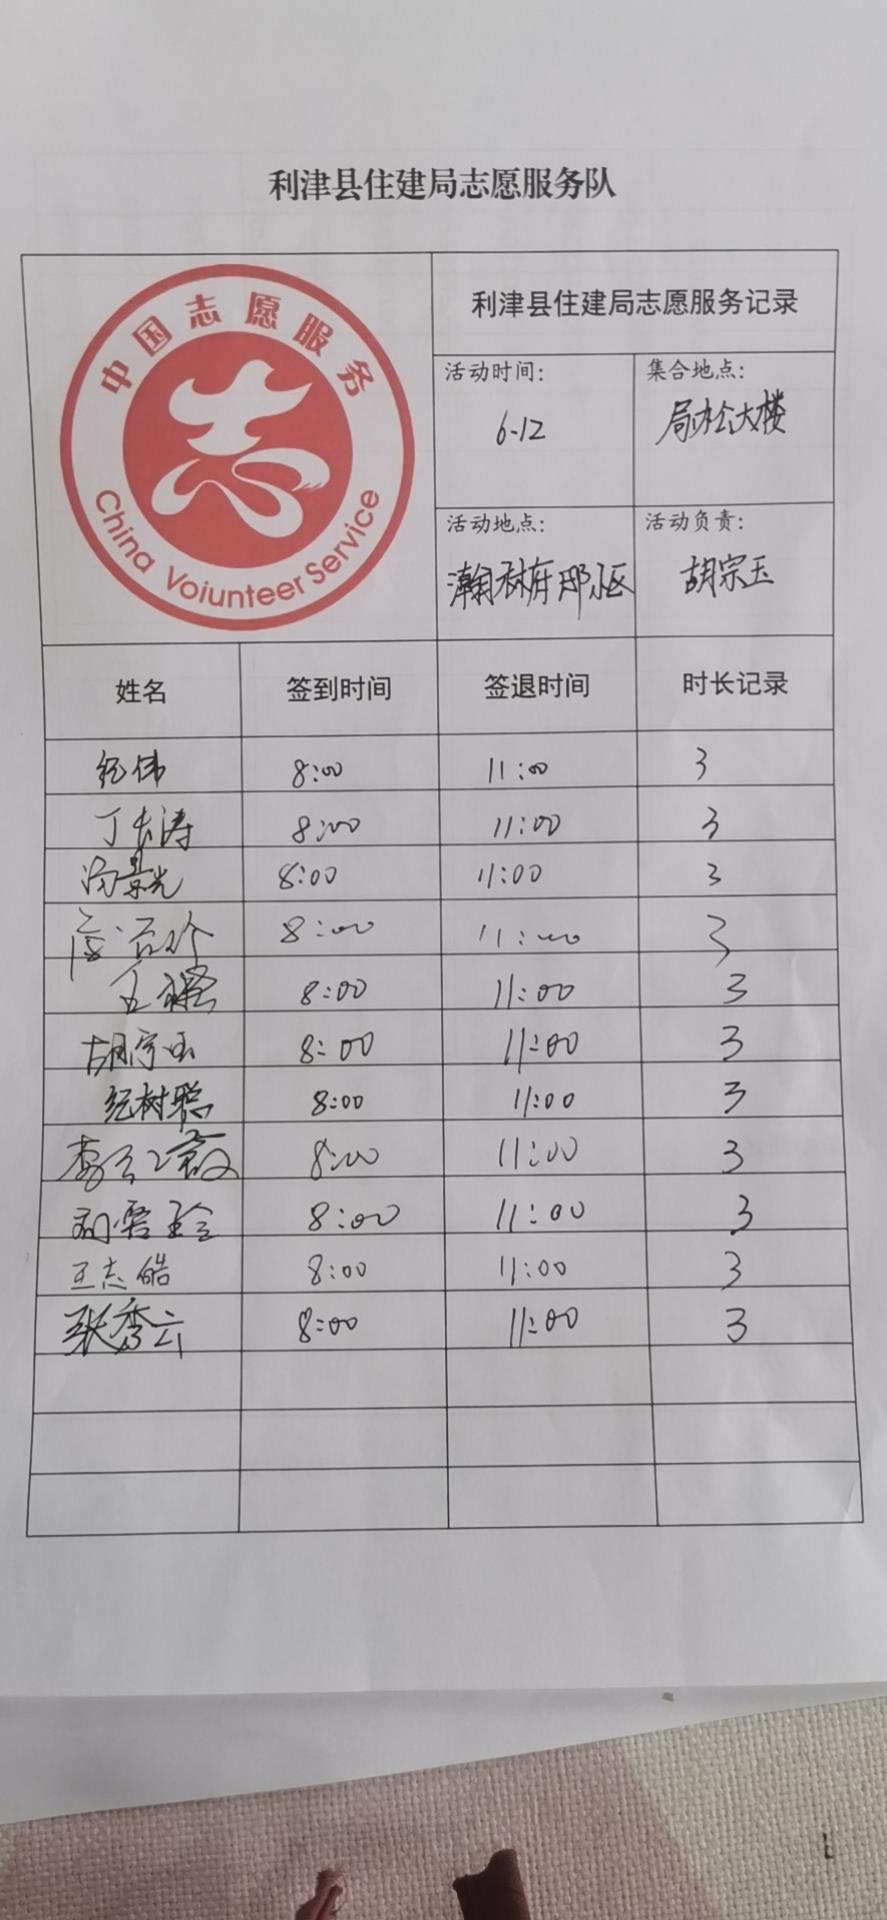 利津县住建局志愿服务队
中国志愿服务
志
China Voiunteer Service
利津县住建局志愿服务记录
活动时间: 集合地点:
6-12 局办公大楼
活动地点: 活动负责:
瀚林府邸小区 胡宗玉
姓名 签到时间 签退时间 时长记录
纪伟 8:00 11:00 3
丁长涛 8:00 11:00 3
冯景光 8:00 11:00 3
8:00 11:00 3
8:00 11:00 3
胡宗玉 8:00 11:00 3
纪树聪 8:00 11:00 3
8:00 11:00 3
8:00 11:00 3
王志皓 8:00 11:00 3
张秀云 8:00 11:00 3